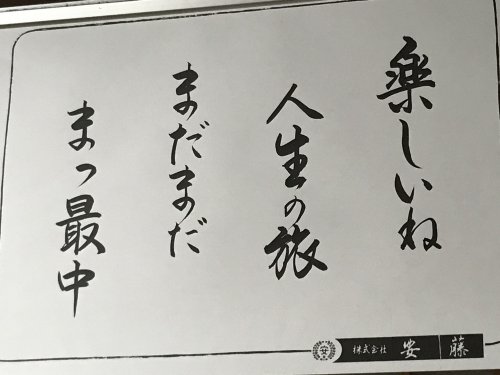 楽しいね
人生の旅
まだまだ
まっ最中
株式会社 安藤